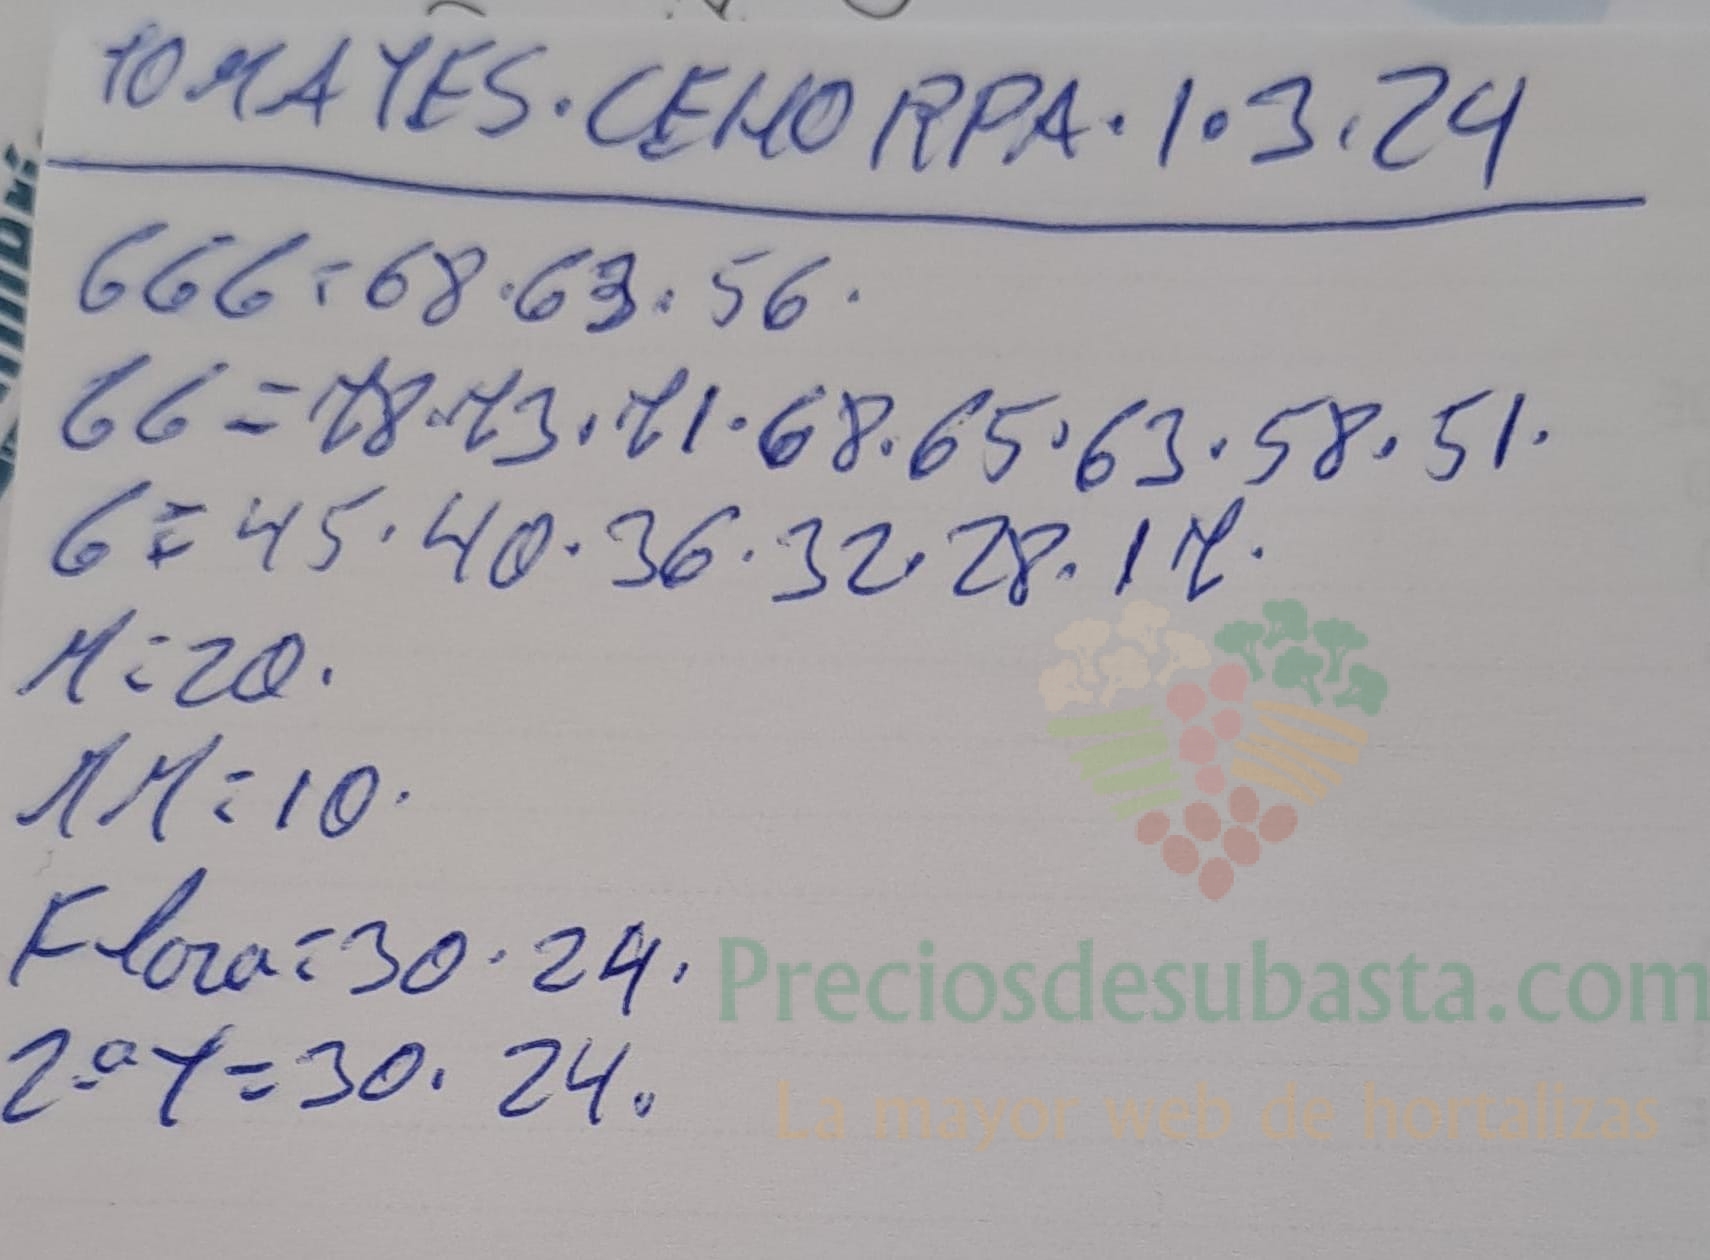 TOMATES. CEHORPA. 1.3.24
GGG = 68.63.56.
GG = 78.73.71.68.65.63.58.51.
G = 45.40.36.32.28.17.
M = 20.
MM = 10.
Flora = 30.24.
2ªY = 30. 24.
Preciosdesubasta.com
La mayor web de hortalizas